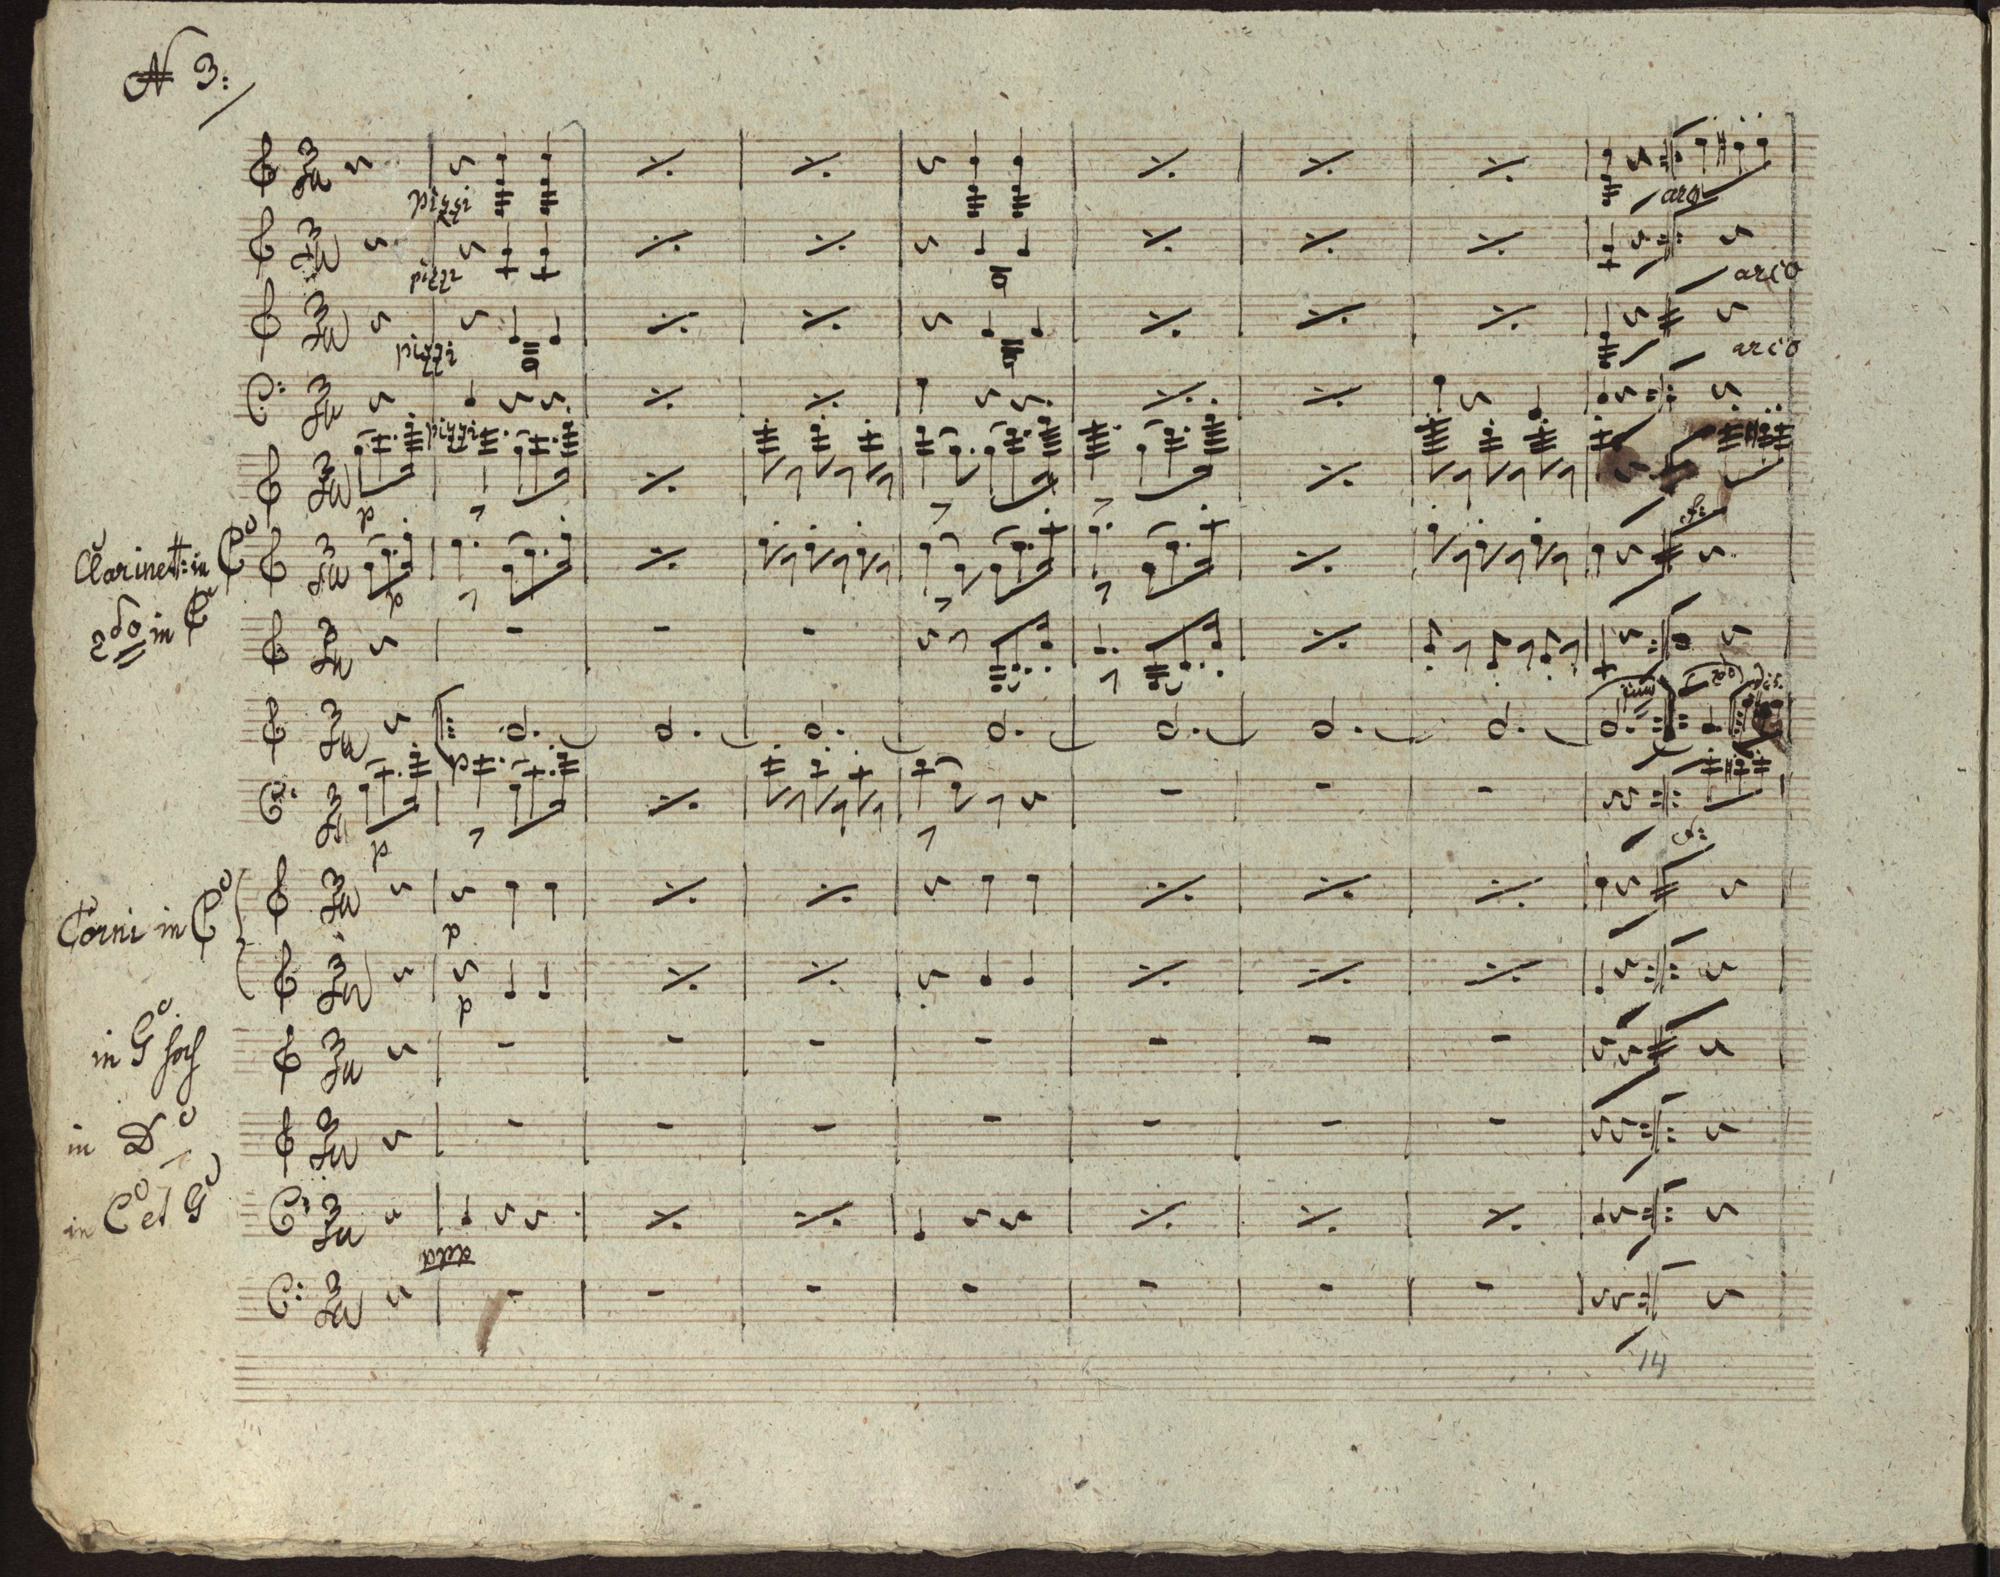 N 3:
pizzi
arco
pizzi
arco
pizzi
arco
pizzi
p
f:
Clarinett: in C
p
2do in C
p
p
f:
Corni in C
p
p
in G hoch
in D
in C et G
14